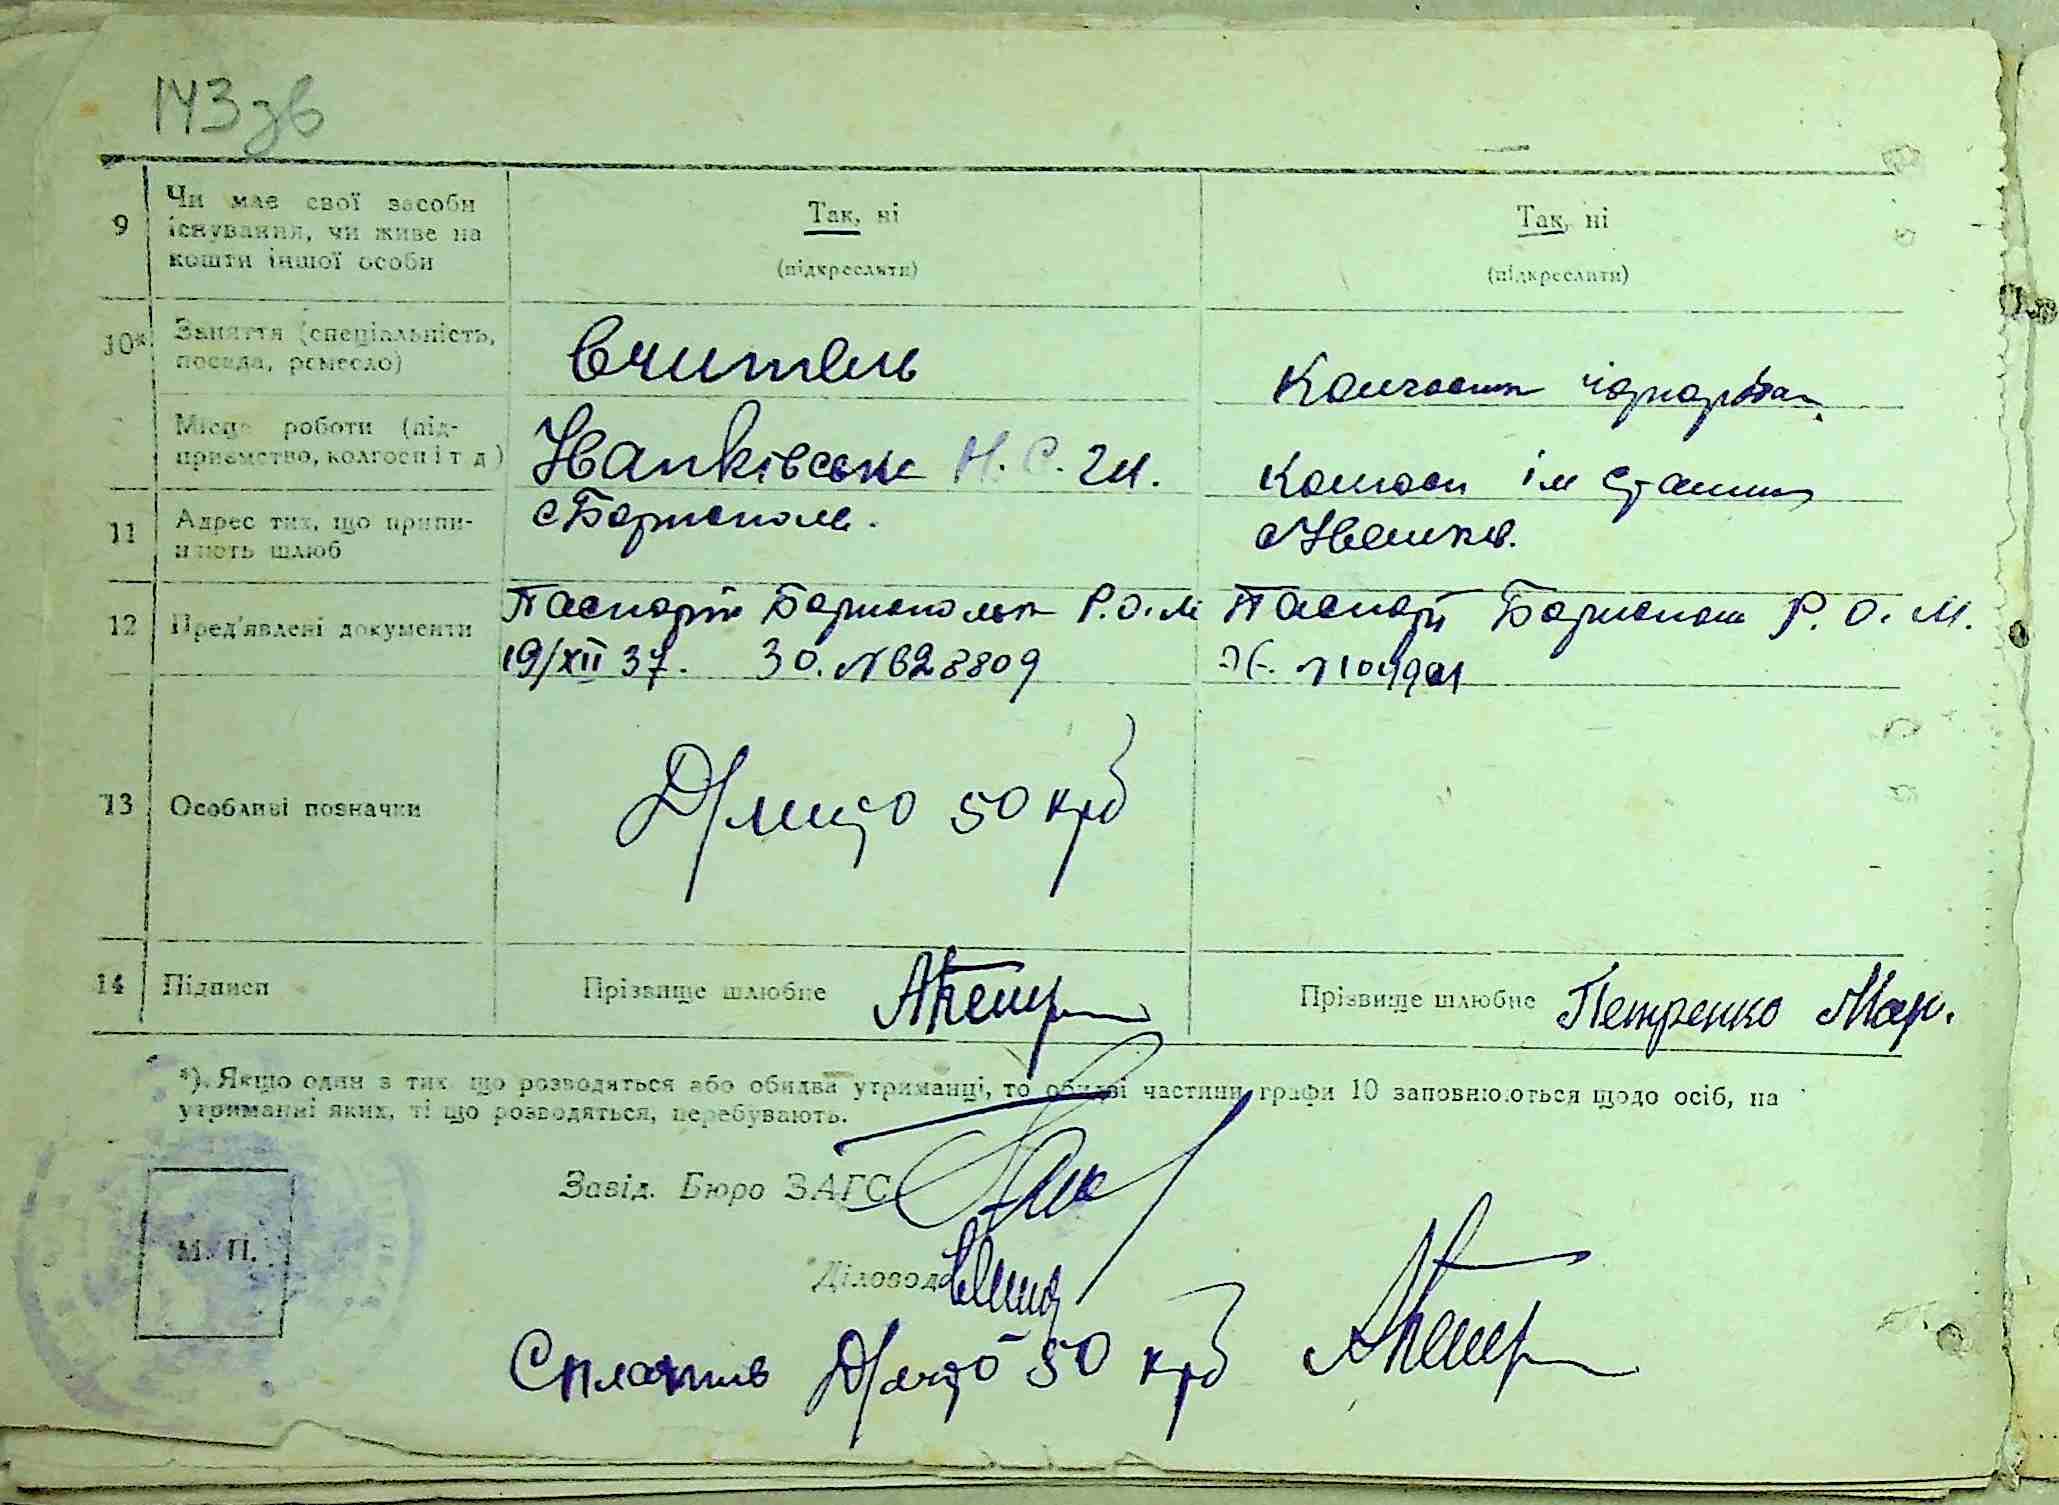 143 зв
9 Чи має свої засоби існування, чи живе на кошти іншої особи
Так, ні
(підкреслити)
Так, ні
(підкреслити)
10* Заняття (спеціальність, посада, ремесло)
Вчитель
Місце роботи (під-
приємство, колгосп і т д)
Іванківська Н. С. Ш.
Колгосп ім Сталіна
11 Адрес тих, що припи-
няють шлюб
с Бориспол.
с Іванків.
12 Пред'явлені документи
Паспорт Бориспольск Р.О.М
19/XII 37. ЗО. № 628809
Паспорт Борисполь Р. О. М.
13 Особливі позначки
50 крб
14 Підписи
Прізвище шлюбне
Прізвище шлюбне Петренко Мар.
*). Якщо один з тих що розводяться або обидва утриманці, то обидві частини графи 10 заповнюються щодо осіб, на
утриманні яких, ті що розводяться, перебувають.
Завід. Бюро ЗАГС
М. П.
Діловод
Сплатив 50 крб